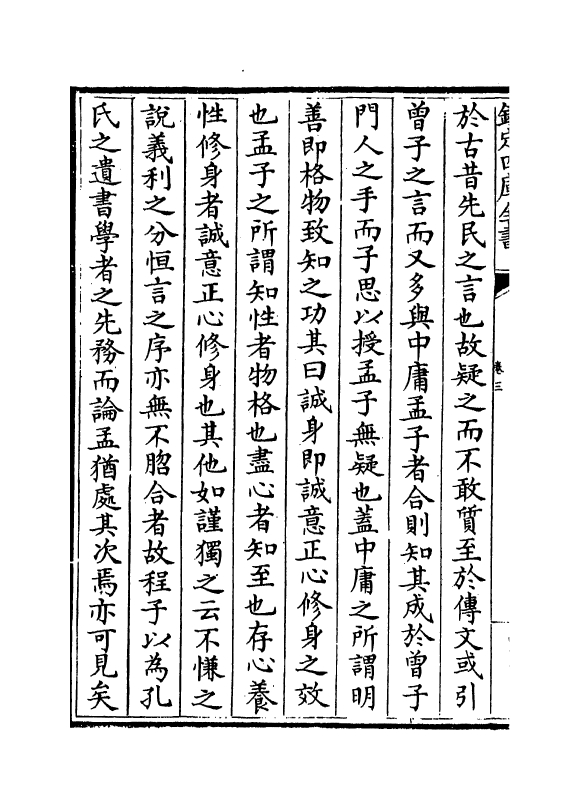 欽定四庫全書
卷三
於古昔先民之言也故疑之而不敢質至於傳文或引
曾子之言而又多與中庸孟子者合則知其成於曾子
門人之手而子思以授孟子無疑也蓋中庸之所謂明
善即格物致知之功其曰誠身即誠意正心修身之效
也孟子之所謂知性者物格也盡心者知至也存心養
性修身者誠意正心修身也其他如謹獨之云不慊之
說義利之分恒言之序亦無不脗合者故程子以為孔
氏之遺書學者之先務而論孟猶處其次焉亦可見矣